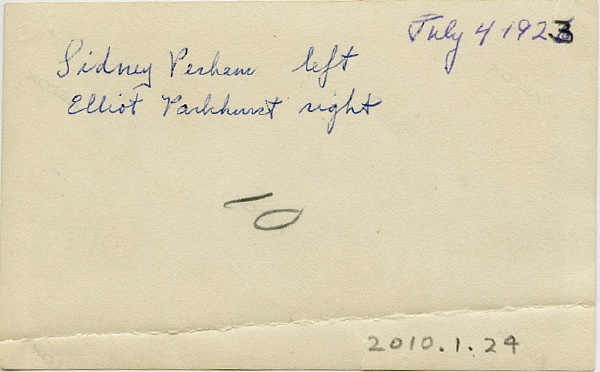 July 4 1923
Sidney Perham left
Elliot Parkhurst right
2010.1.24